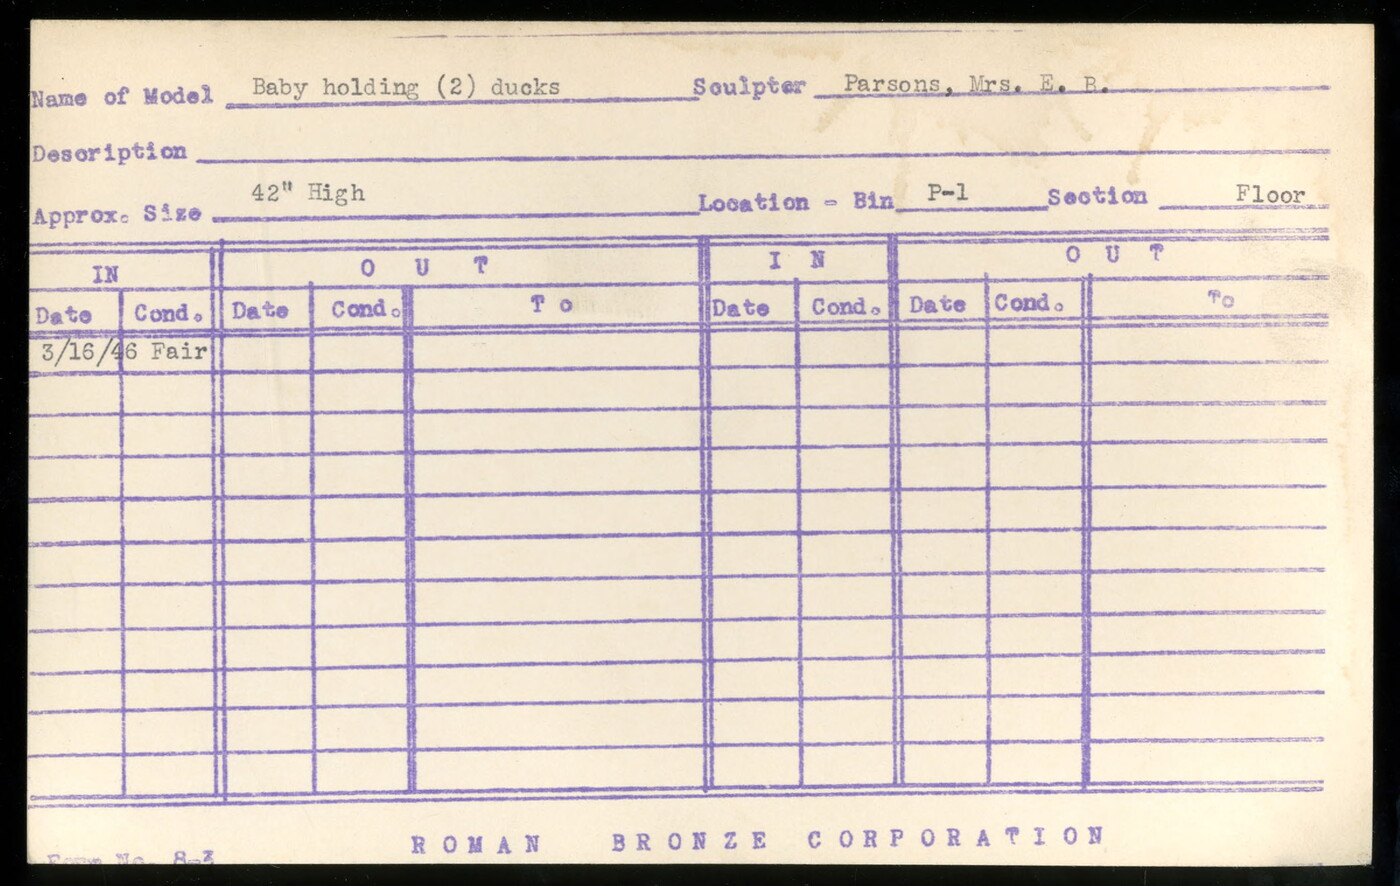 Name of Model Baby holding (2) ducks Sculptor Parsons, Mrs. E. B.
Description
Approx. Size 42" High Location - Bin P-1 Section Floor
IN OUT IN OUT
Date Cond. Date Cond. To Date Cond. Date Cond. To
3/16/46 Fair
ROMAN BRONZE CORPORATION
Form No. 8-3